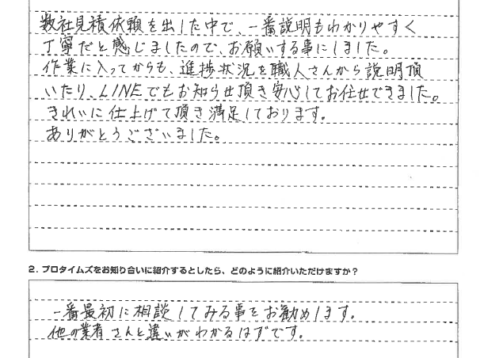 数社見積依頼を出した中で、一番説明もわかりやすく
丁寧だと感じましたので、お願いする事にしました。
作業に入ってからも、進捗状況を職人さんから説明頂
いたり、LINEでもお知らせ頂き安心してお任せできました。
きれいに仕上げて頂き満足しております。
ありがとうございました。
2. プロタイムズをお知り合いに紹介するとしたら、どのように紹介いただけますか?
一番最初に相談してみる事をお勧めします。
他の業者さんと違いがわかるはずです。